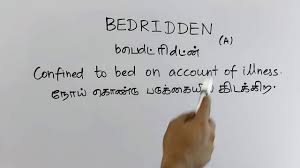 BEDRIDDEN
பெட்ரிட்டன் (A)
Confined to bed on account of illness.
நோய் கொண்டு படுக்கையில் கிடக்கிற.